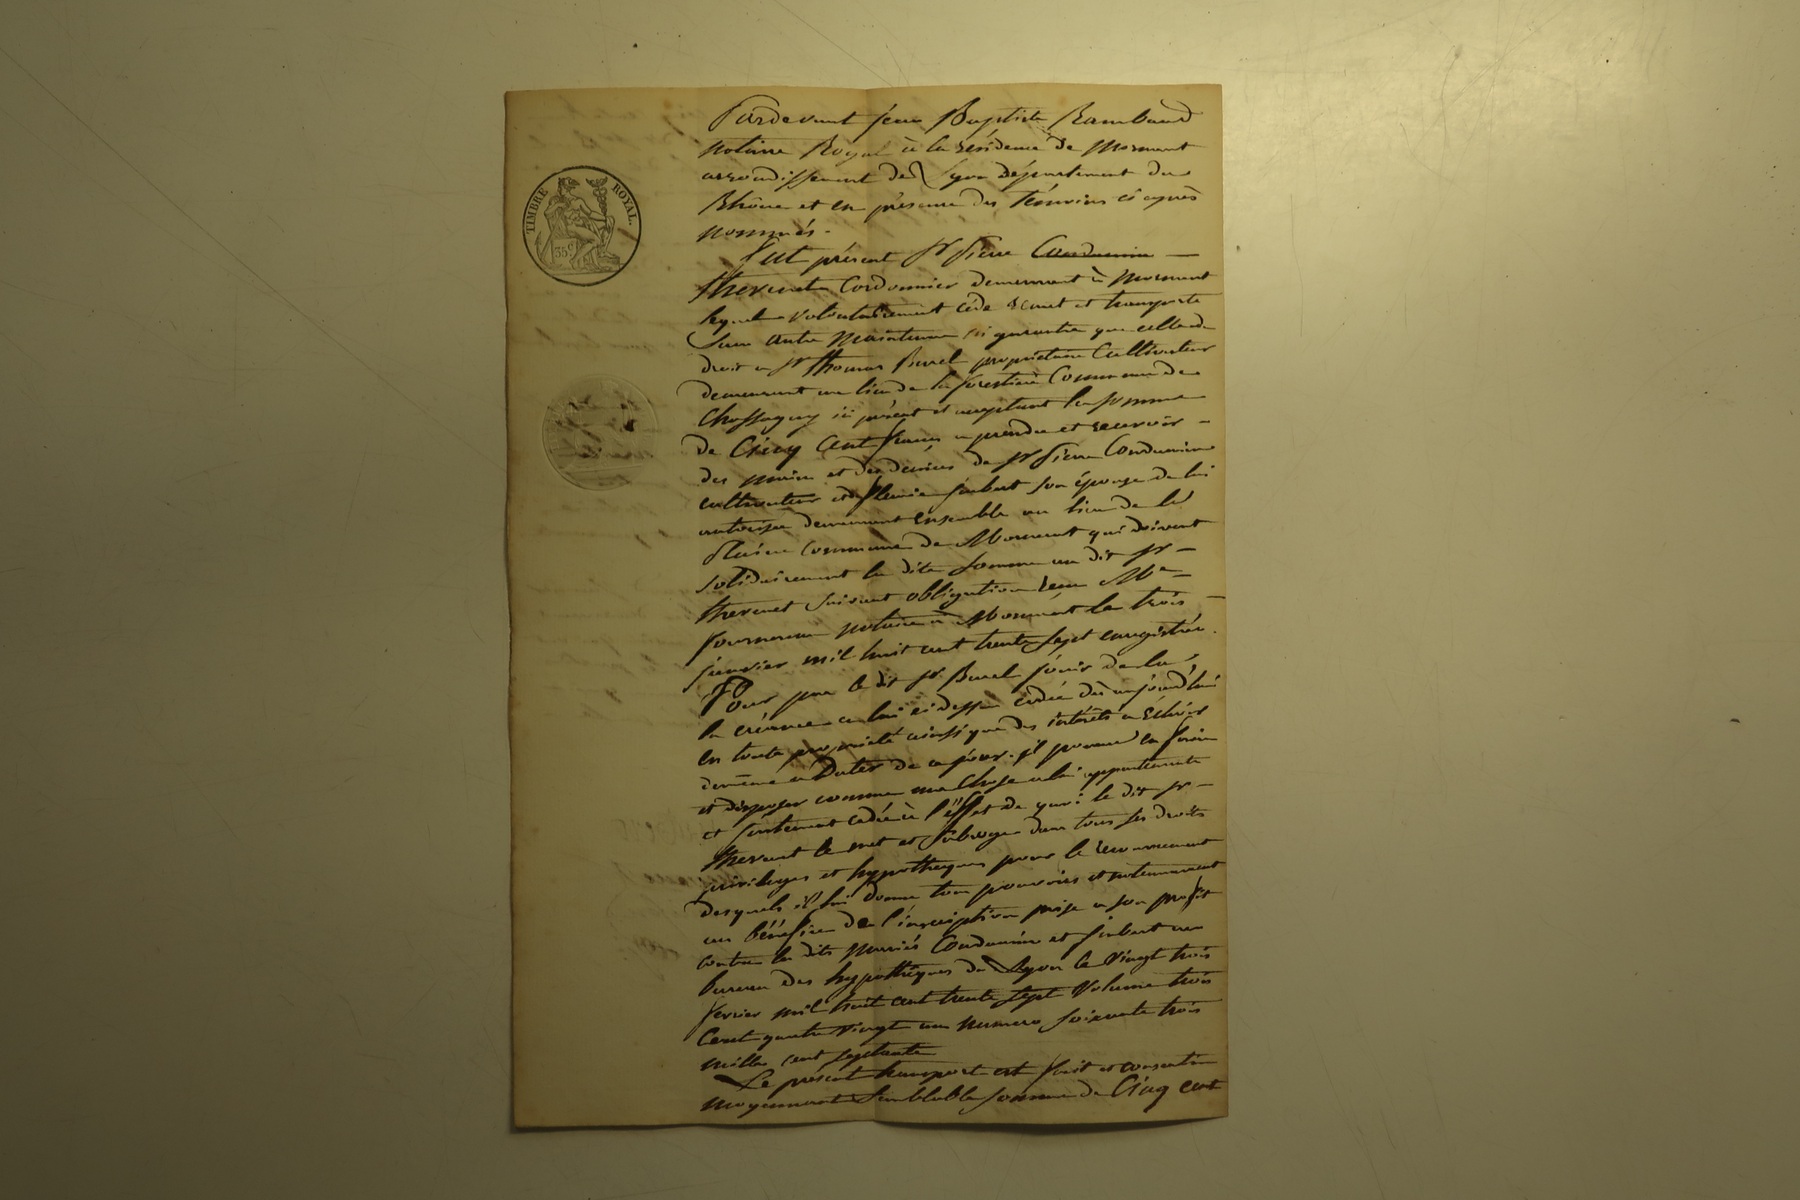 TIMBRE ROYAL.
35c.
Pardevant Jean Baptiste Rambaud
notaire Royal à la résidence de Mornant
arrondissement de Lyon département du
Rhône et en présence des témoins ci après
nommés.
fut présent Sr Pierre
thevenet Cordonnier demeurant à Mornant
lequel a volontairement cédé remet et transporte
Sans autre maintenue ni garantie que celle de
droit a Sr thomas Burel propriétaire Cultivateur
demeurant au lieu de la forestière Commune de
Chassagny ici présent et acceptant la somme
de Cinq Cent francs a prendre et recevoir
des mains et des deniers de Sr Pierre Condamine
cultivateur et de fleurie Jinbert son épouse de lui
autorisée demeurant ensemble au lieu de la
Plaine commune de Mornant qui doivent
solidairement la dite somme au dit Sr
thevenet suivant obligation reçue Me
fournereau notaire à Mornant le trois
janvier mil huit cent trente sept enregistrée.
Pour par le dit Sr Burel jouir de la
la créance a lui ci dessus cédée dès aujourd'hui
en toute propriété ainsi que des intérêts a Echoir
à Dater de ce jour. il pourra en faire
et disposer comme une chose a lui appartenante
et justement cédée à l'effet de quoi le dit Sr
thevenet le met et subroge dans tous ses droits
privileges et hypotheques pour le recouvrement
desquels il lui donne tous pouvoirs et notamment
au bénéfice de l'inscription prise a son profit
contre les dits mariés Condamine et Jinbert au
bureau des hypothèques de Lyon le vingt trois
fevrier mil huit cent trente sept Volume trois
Cent quatre vingt un numero soixante trois
mille cent septante
Le présent transport est fait et consenti
moyennant Semblable somme de Cinq cent